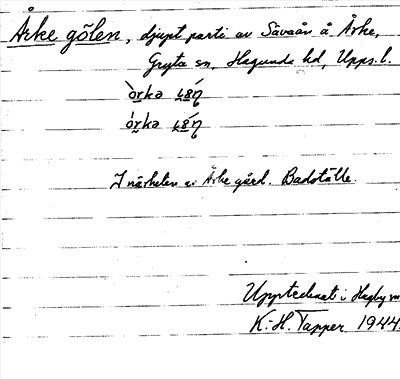 Årke gölen, djupt parti av Sävaån å Årke,
Gryta sn, Hagunda hd, Upps. l.
I närheten av Årke gård. Badställe.
Upptecknat i Hagby sn
K.-H. Tapper 1944.